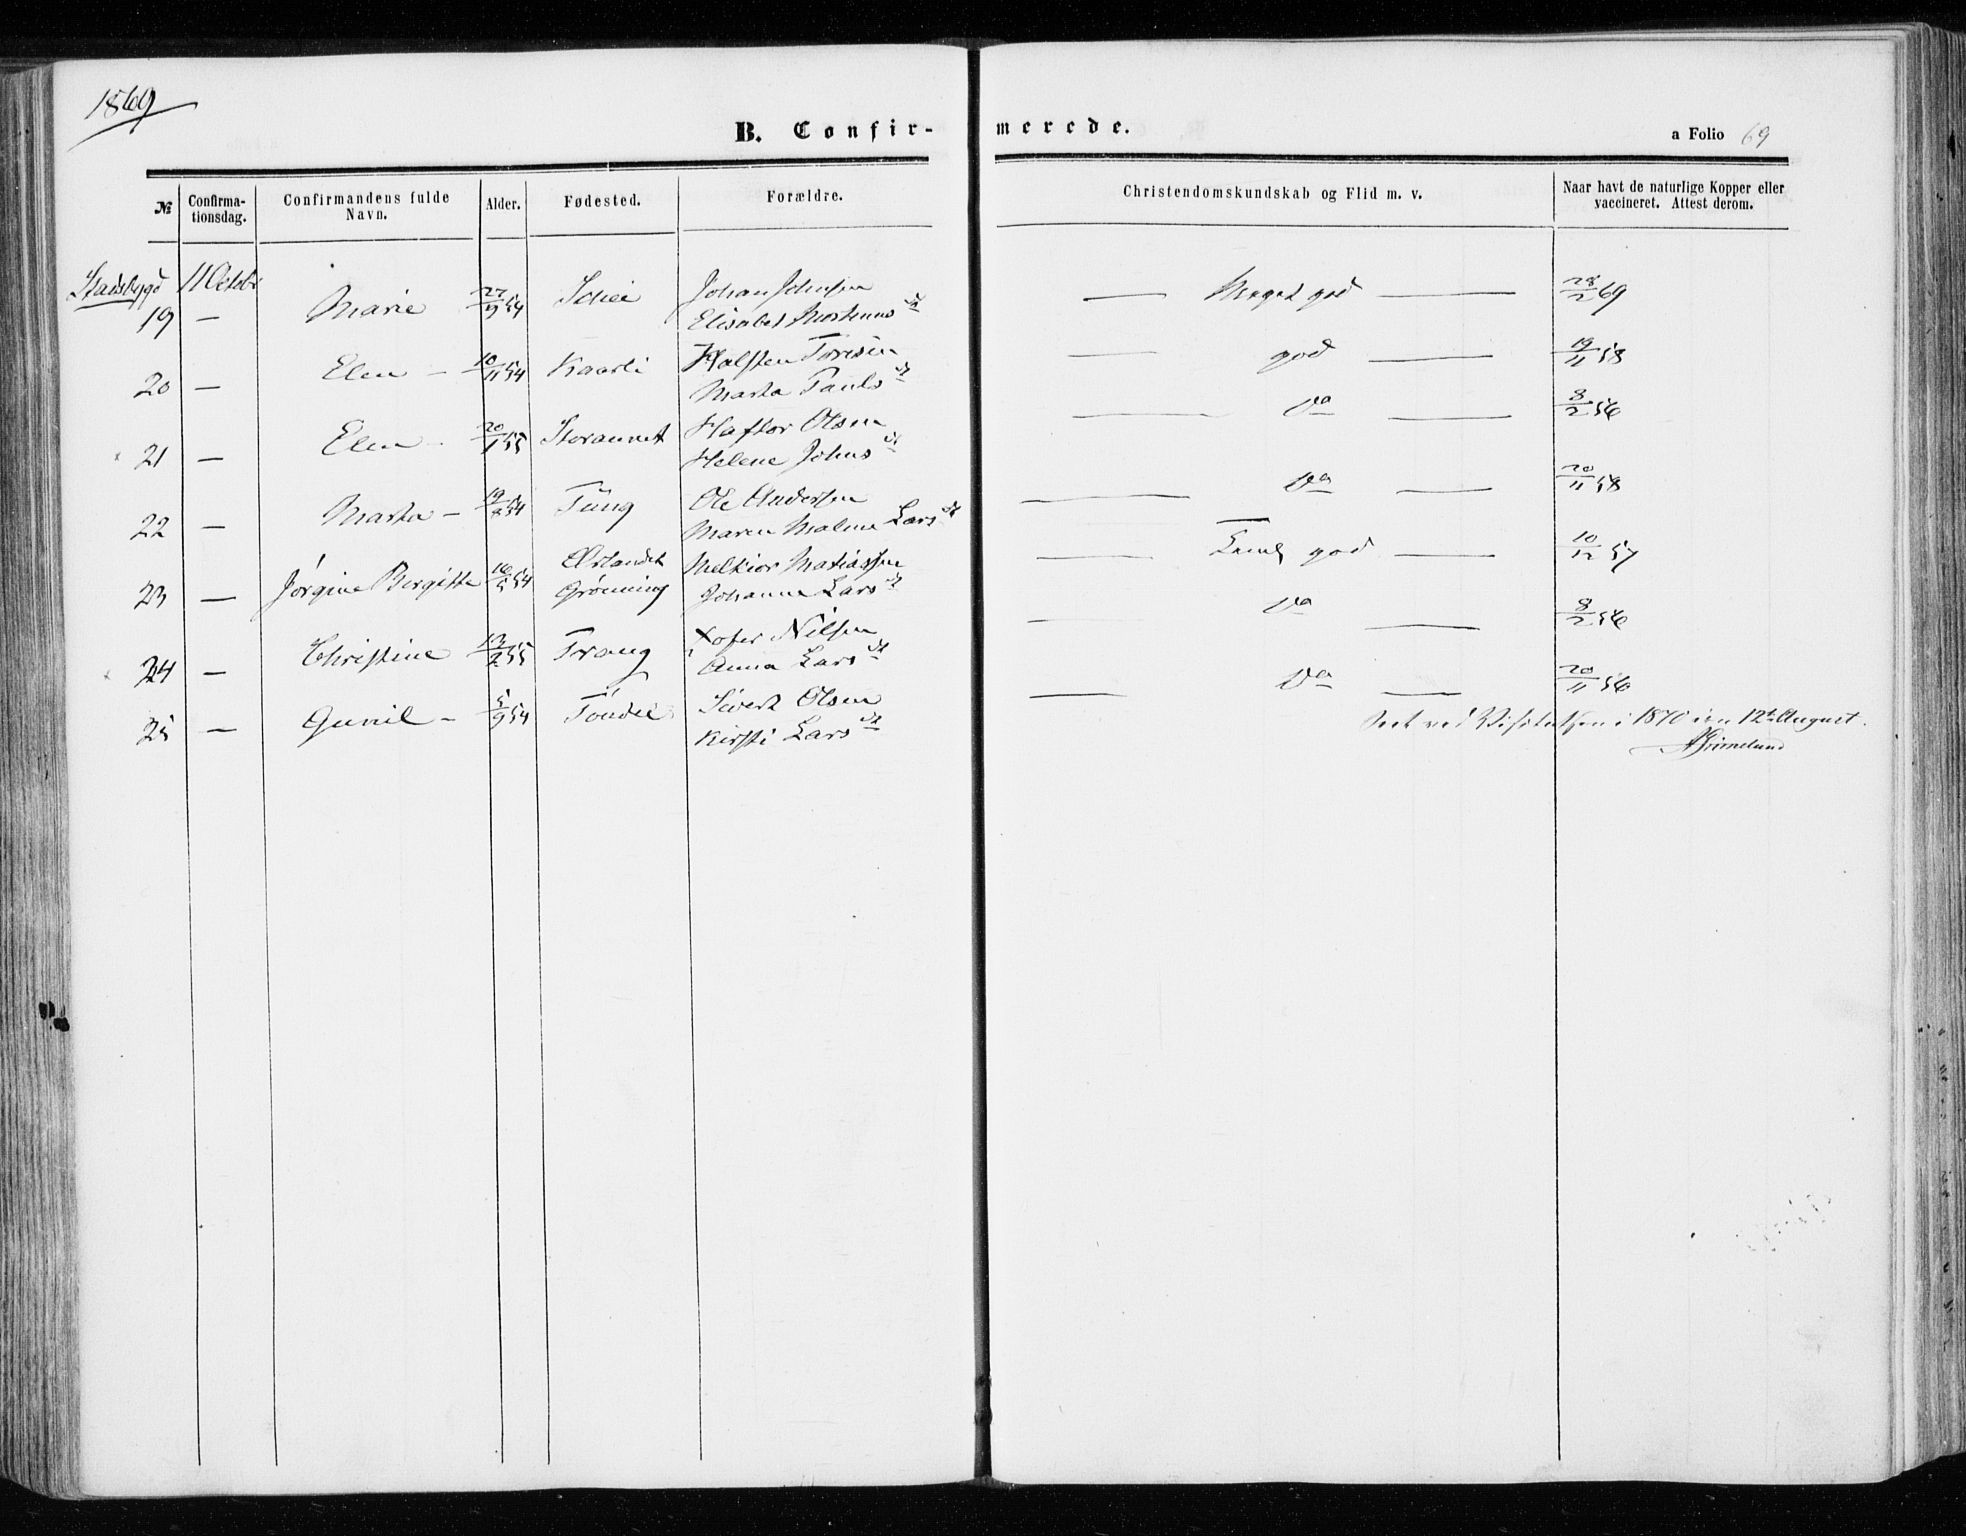 1869
B. Confirmerede.
a Folio 69
№ Confirmationsdag. Confirmandens fulde Navn. Alder. Fødested. Forældre. Christendomskundskab og Flid m. v. Naar havt de naturlige Kopper eller vaccineret. Attest derom.
Stadsbygd 11 Octobr
19 — Marie 27/9 54 Schei Johan Johnsen Elisabet Mortens dt — Meget god — 28/2 69
20 — Elen — 10/11 54 Kaarli Halsten Toresen Marta Pauls dt — god — 19/11 58
21 — Elen - 20/1 55 Haftor Olsen Helene Johns dt — Do — 8/2 56
22 — Marta — 19/8 54 Tüng Ole Andersen Maren Malene Lars dt — Do — 20/11 58
23 — Jørgine Bergitte 16/5 54 Ørlandet Grønning Melkior Matiassen Johanna Lars dt — Temlg god — 10/12 57
24 — Christine 13/2 55 Trang Xofer Nilsen Anna Lars dt — Do — 8/2 56
25 — Gunil — 5/9 54 Tøndel Sivert Olsen Kirsti Lars dt — Do — 20/11 56
Seet ved Visitatsen i 1870 den 12te August.
AGrimelund